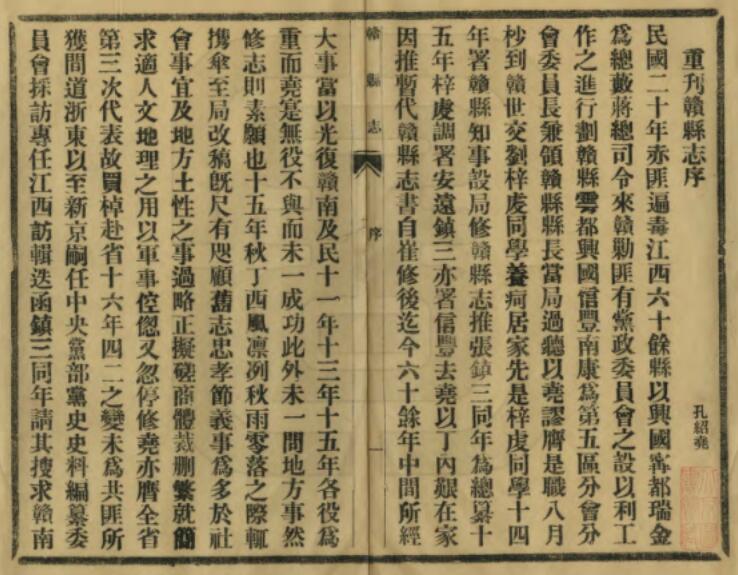 重刊贛縣志序
孔紹堯
民國二十年赤匪遍毒江西六十餘縣以興國寗都瑞金
為總藪蔣總司令來贛勦匪有黨政委員會之設以利工
作之進行劃贛縣雩都興國信豐南康為第五區分會分
會委員長兼領贛縣縣長當局過聽以堯謬膺是職八月
杪到贛世交劉梓虔同學養疴居家先是梓虔同學十四
年署贛縣知事設局修贛縣志推張鎮三同年為總纂十
五年梓虔調署安遠鎮三亦署信豐去堯以丁內艱在家
因推暫代贛縣志書自崔修後迄今六十餘年中間所經
贛縣志
序
一
大事當以光復贛南及民十一年十三年十五年各役為
重而堯寔無役不與而未一成功此外未一問地方事然
修志則素願也十五年秋丁西風凛冽秋雨零落之際輒
携傘至局改稿旣尺有咫顧舊志忠孝節義事為多於社
會事宜及地方土性之事過略正擬磋商體裁刪繁就簡
求適人文地理之用以軍事倥偬又忽停修堯亦膺全省
第三次代表故買棹赴省十六年四二之變未為共匪所
獲間道浙東以至新京嗣任中央黨部黨史史料編纂委
員會採訪專任江西訪輯迭函鎮三同年請其搜求贛南